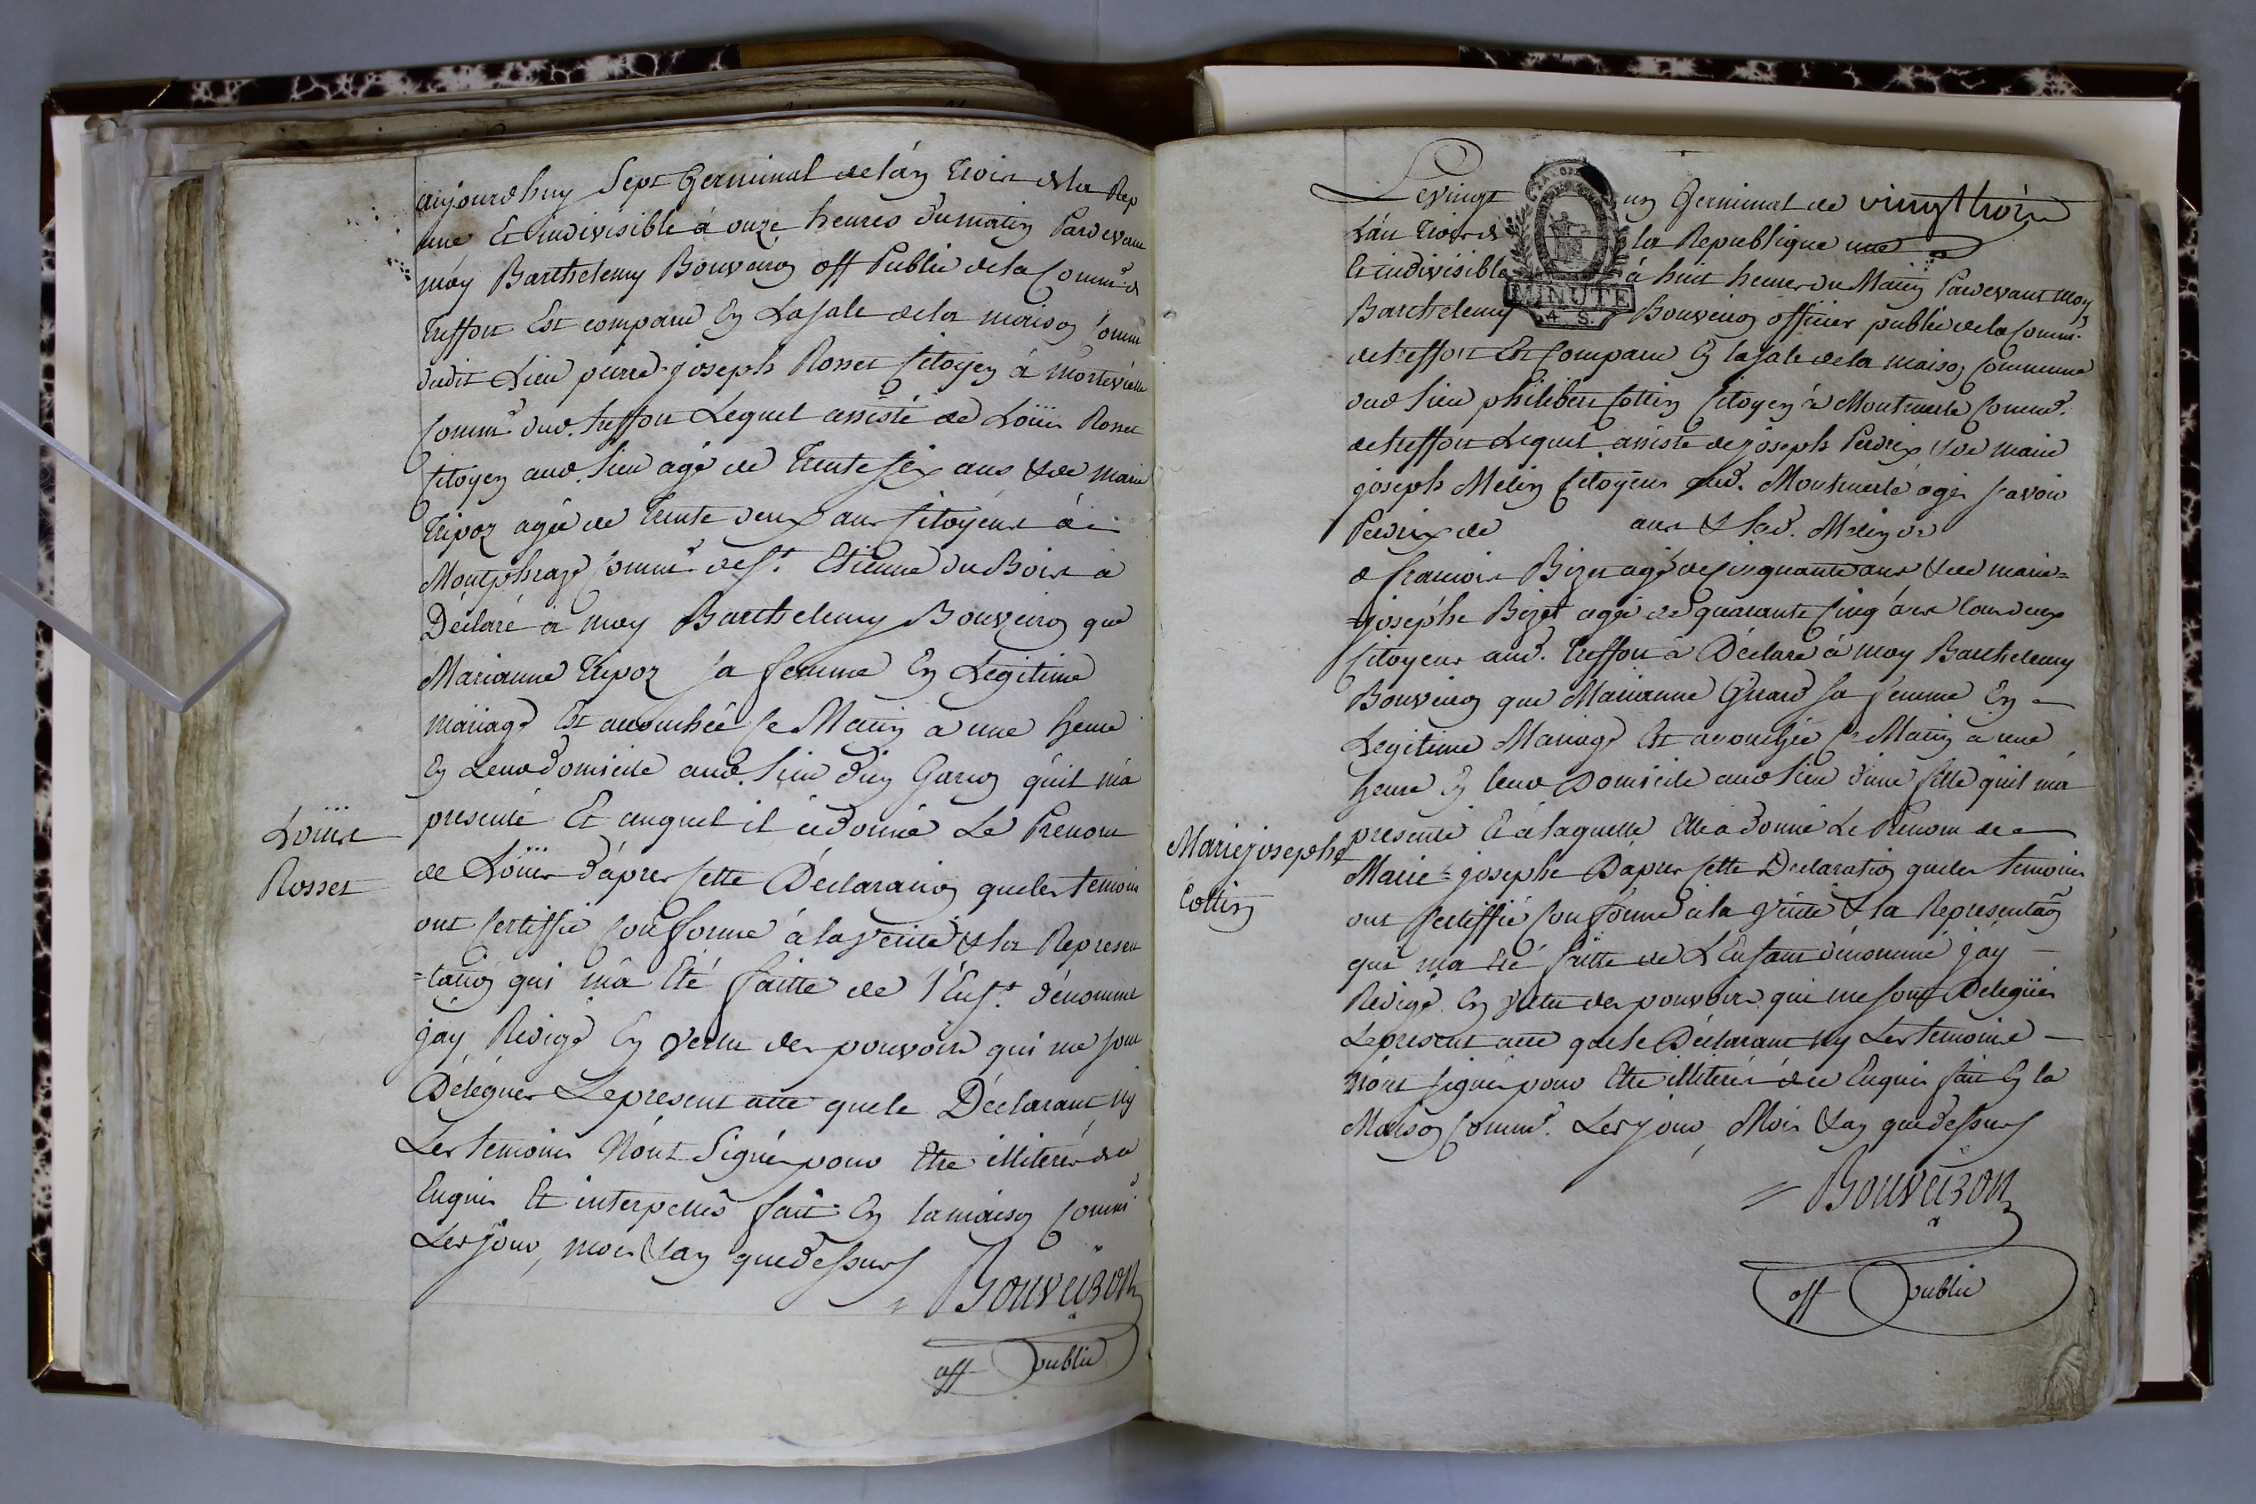 aujourdhuy Sept Germinal de lán trois de la Rep
une Et indivisible à onze heures du matin Pardevant
móy Barthelemy Bouveiron off Public de la Comm.e de
treffort Est comparu En La sale de la maison Comm
dudit Lieu pierre joseph Rosset Citoyen à
Comm.e dud. treffort Lequel assisté de Loüis Rosset
Citoyen aud. Lieu agé de trente six ans & de marie
tripoz agée de trente deux ans Citoyens à
Comm.e de St. Etienne du Bois à
Déclaré à moy Barthelemy Bouveiron que
Marianne tripoz sa femme En Legitime
mariage Est accouchée Ce Matin à une heure
En Leur domicile aud. Lieu d'un Garçon quil m'a
presenté Et auquel il à donné Le Prenom
de Loüis d'áprès Cette Déclaration que les temoins
ont Certiffié Conforme à la verité & la Represen
=tation qui m'a Eté faitte de l'Enft. dénommé
jáy Redigé En vertu des pouvoirs qui me sont
Délégués Le present acte que le Déclarant Ny
Les temoins N'ont Signés pour Etre illiterés de ce
Enquis Et interpellés fait En la maison Comm.e
Les jour, mois & an que dessus
Bouveiron
off Public
Loüis
Rosset
Le vingt un Germinal de vingt trois
L'án trois de la Republique une
Et indivisible à huit heures du Matin Pardevant moy
Barthelemy Bouveiron officier public de la Comm.e
MINUTE
4. S.
de treffort Est Comparu En la sale de la maison Commune
dud Lieu philibert Cottin Citoyen à Montmerle Comm.e
de treffort Lequel assisté de joseph Perdrix & de marie
joseph Mélin Citoyens aud. Montmerle agés savoir
Perdrix de ans & lad. Mélin de
de francois Bizet agé de Cinquante ans & de marie=
=josephe Bizet agée de quarante Cinq ans tous deux
Citoyens aud. treffort à Déclaré à moy Barthelemy
Bouveiron que Marianne Girard sa femme En
Legitime Mariage Est accouchée Ce Matin à une
heure En leur Domicile aud Lieu d'une fille quil m'a
presenté Et à laquelle Elle à donné Le Prenom de
Marie=josephe D'après Cette Declaration que les temoins
ont Certiffié Conforme à la vérité & la Representaon
qui m'a Eté faitte de L'Enfant dénommé jáy
Redigé En vertu des pouvoirs qui me sont Delegüés
Le present acte que le Déclarant Ny Les temoins
N'ónt signés pour Etre illiterés de ce Enquis fait En la
Maison Comm.e Les jour, Mois & an que dessus
Bouveiron
off Public
Marie josephe
Cottin